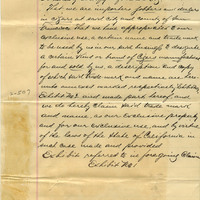 That we are importers jobbers and dealers
in cigars at said city and county of San
Francisco That we have appropriated to our
exclusive use a certain name and trade mark
to be used by us in our said business to designate
a certain kind or brand of Cigars manufactured
for and sold by us a description and copy
of which said trade mark and name are here-
unto annexed marked respectively Exhibit
Exhibit No 2 and made part hereof and
we do hereby claim said trade mark
and name, as our exclusive property
and for our exclusive use and by virtue
of the laws of the State of California in
such case made and provided
Exhibit referred to in foregoing Claim
Exhibit No 1